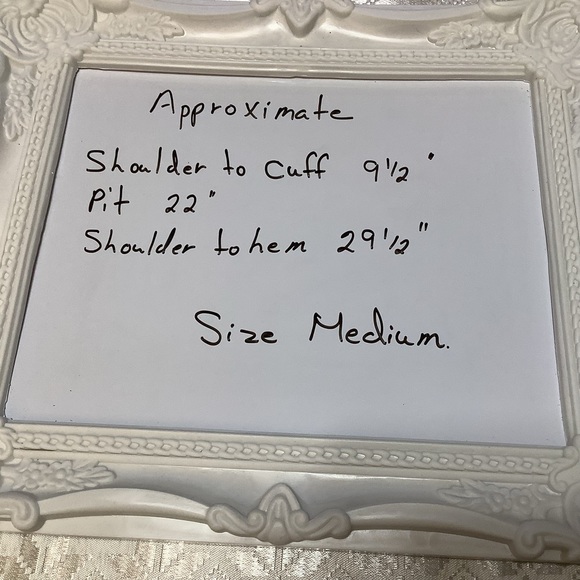 Approximate
Shoulder to Cuff 9 1/2 '
Pit 22"
Shoulder to hem 29 1/2"
Size Medium.